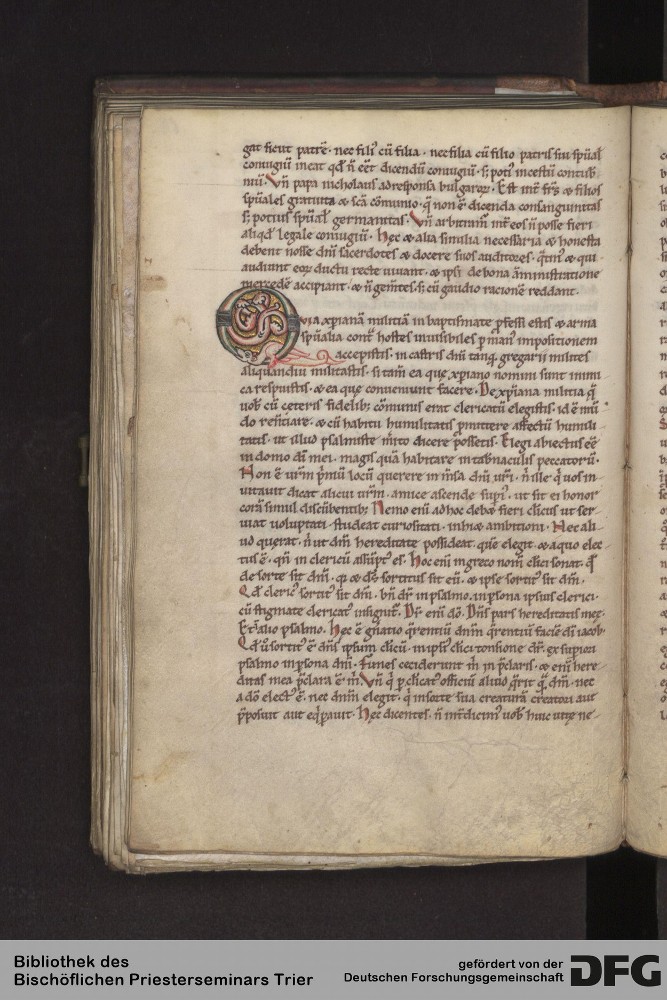 gat sicut patrē. nec fili᷒ cū filia. nec filia cū filio patris sui spūal
coniugiū ineat qd̄ n̄ eēt dicendū coniugiū. s; poti᷒ incestū contub
niū. Vn̄ papa nicholaus ad responsa bulgaroꝝ. Est int̄ fr̄s & filios
spūales gratuita & sc̄a cōmunio. q̄ non ē dicenda consanguinitas
s; potius spūal germanitas. Vn̄ arbitram̄ int̄ eos n̄ posse fieri
aliqd̄ legale coniugiū. Hec & alia similia necessaria & honesta
debent nosse dn̄i sacerdotes & docere suos auditores. qtin᷒ & qui
audiunt eoꝝ ductu recte vivant. & ipsi de bona āministratione
mercedē accipiant. & n̄ gem̄tes. s; cū gaudio racionē reddant.
Quia xp̄ianā militiā in baptismate p̄fessi estis & arma
spūalia cont̄ hostes invisibiles p̄ man᷒ impositionem
accepistis. in castris dn̄i tanq̄ gregarii milites
aliquandiu militastis. si tam̄ ea que xp̄iano nomini sunt inimi
ca respuistis. & ea que conveniunt facere. De xp̄iana militia q̄
vob̄ cū ceteris fidelib; cōmunis erat clericatū elegistis. id ē mū
do ren̄ciare. & cū habitu humilitatis p̄mittere affectū humili
tatis. ut illud psalmiste m̄ito dicere possetis. Elegi abiectus eē
in domo dī mei. magis quā habitare in tab̄naculis peccatorū.
Non ē vr̄m p̄miū locū querere in m̄sa dn̄i vr̄i. n̄ ille q̄ vos in
vitavit dicat alicui vr̄m. amice ascende supi᷒. ut sit ei honor
corā simul discūbentib;. Nemo eni ad hoc debet fieri clic᷒us ut ser
viat voluptati. studeat curiositati. inhiet ambitioni. Nec ali
ud querat. n̄ ut dn̄i hereditate possideat. quē elegit. & a quo elec
tus ē. qn̄ in clericū assūpt᷒ est. Hoc eni in greco nom̄ clici sonat. qd̄
de sorte sit dn̄i. q̄ & d᷒s sortitus sit eū. & ipse sortit᷒ sit dn̄i.
Qd̄ cleric᷒ sortit᷒ sit dn̄i. bn̄ dr̄ in psalmo. in p̄sona ipsius clerici.
cū stigmate clericat᷒ insignit̄. Dr̄ eni dō. Dn̄s pars hereditatis mee.
Et in alio psalmo. Hec ē gn̄atio q̄rentiū dn̄m q̄rentiū faciē dī iacob.
Qd̄ v̄ sortit᷒ ē dn̄s ipsum clicū. in ipsi᷒ clici tonsione dr̄. ex supiori
psalmo in p̄sona dn̄i. Funes ceciderunt m̄ in p̄claris. & eni here
ditas mea p̄clara ē m̄. Vn̄ q̄ p̄ clicat᷒ officiū aliud q̄rit q̄ dn̄m. nec
a dō elect᷒ ē. nec dn̄m elegit. q̄ in sorte sua creaturā creatori aut
p̄posuit aut eq̄pavit. Hec dicentes. n̄ int̄dicim᷒ vob̄ huic vite ne-
Bibliothek des
Bischöflichen Priesterseminars Trier
gefördert von der
Deutschen Forschungsgemeinschaft
DFG